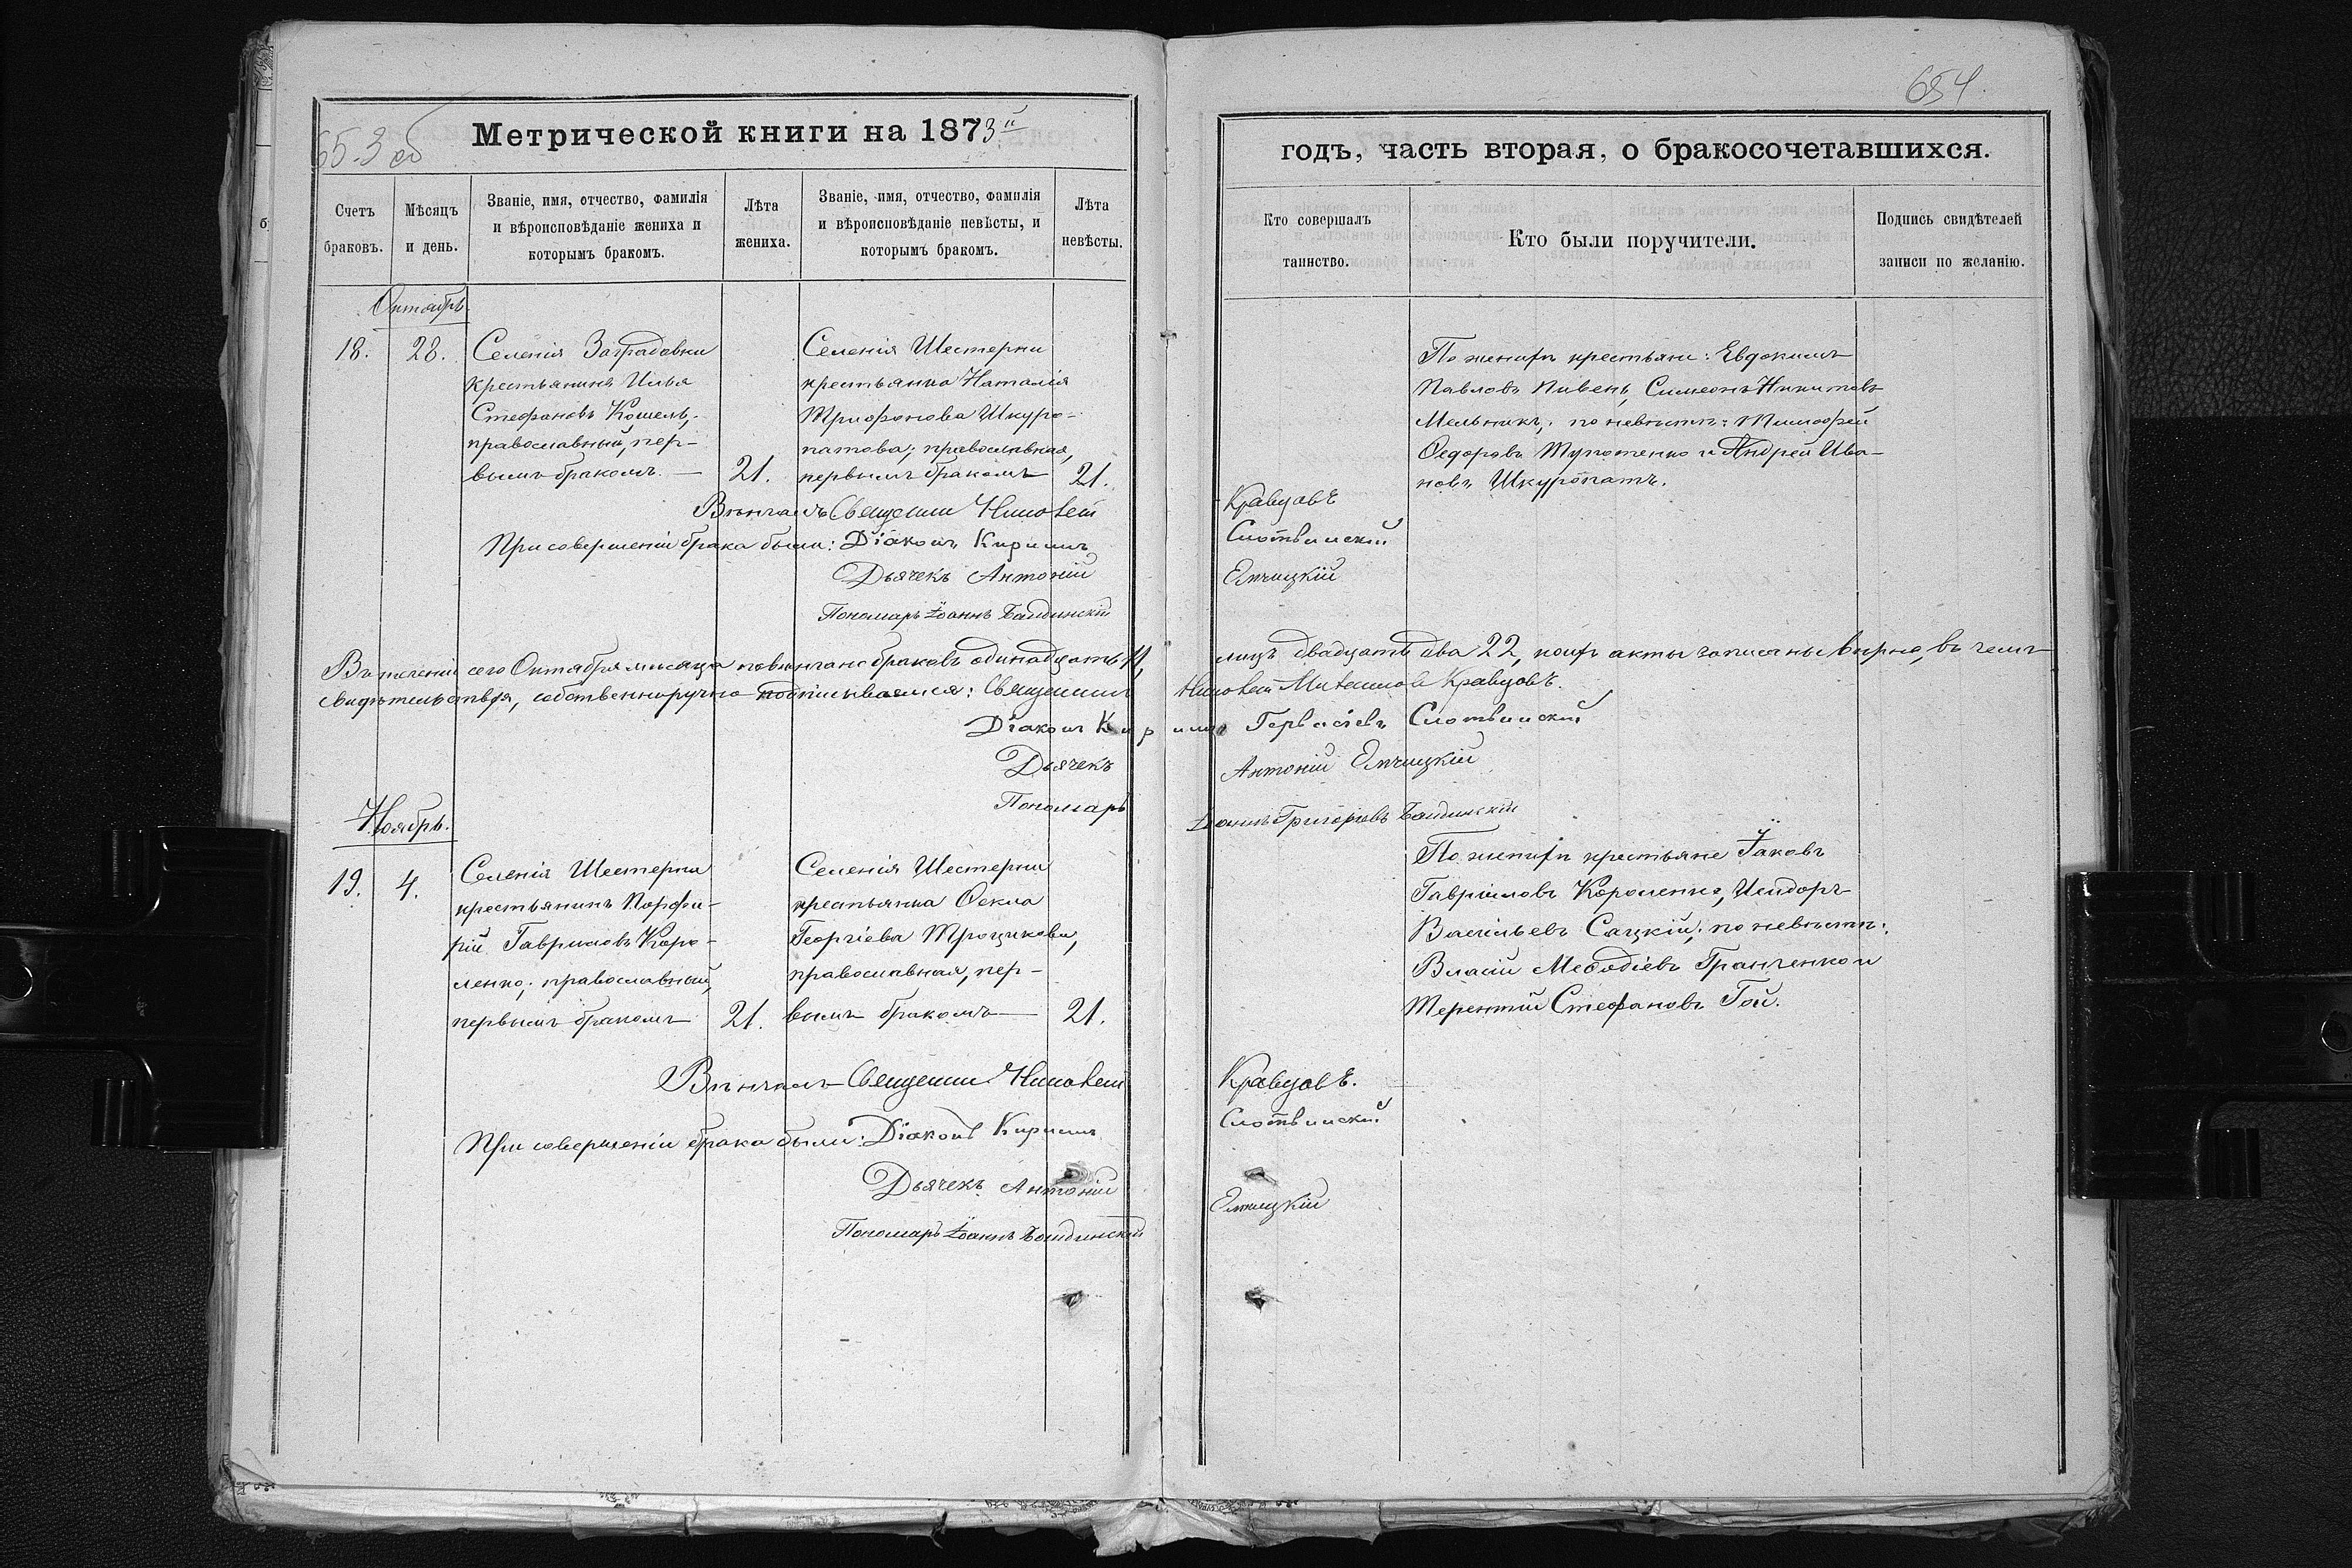 653 об
Метрической книги на 1873й
Счетъ браковъ.
Мѣсяцъ и день.
Званіе, имя, отчество, фамилія и вѣроисповѣданіе жениха и которымъ бракомъ.
Лѣта жениха.
Званіе, имя, отчество, фамилія и вѣроисповѣданіе невѣсты, и которымъ бракомъ.
Лѣта невѣсты.
Октябрь.
18.
28.
Селенія Заградовки
крестьянинъ Илья
Стефановъ Кошель,
православный, пер-
вымъ бракомъ. —
21.
Селенія Шестерни
крестьянка Наталія
Трифонова Шкуро-
патова; православная,
первымъ бракомъ
21.
Вѣнчалъ Священник Николай
При совершеніи брака были: Діаконъ Кириллъ
Дьячекъ Антоній
Пономарь Іоаннъ
Въ теченіи сего Октября мѣсяца повѣнчано браковъ одинадцать 11,
свидѣтельствуя, собственноручно подписываемся: Священникъ
Діаконъ Кир
Дьячекъ
Пономарь
Ноябрь.
19.
4.
Селенія Шестерни
крестьянинъ Порфи-
рій Гавриловъ Коро-
ленко; православный,
первымъ бракомъ
21.
Селенія Шестерни
крестьянка Ѳекла
Георгіева Трощикова,
православная, пер-
вымъ бракомъ —
21.
Вѣнчалъ Священник Николай
При совершеніи брака были: Діаконъ Кириллъ
Дьячекъ Антоній
Пономарь Іоаннъ
654.
годъ, часть вторая, о бракосочетавшихся.
Кто совершалъ таинство.
Кто были поручители.
Подпись свидѣтелей записи по желанію.
По женихѣ крестьяне: Евдокимъ
Павловъ Пивень, Симеонъ Никитовъ
Мельникъ; по невѣстѣ: Тимофей
Ѳедоровъ Тупотенко и Андрей Ива-
новъ Шкуропатъ.
Кравцовъ
Слотвинскій
Елчицкій
лицъ двадцать два 22, коихъ акты записаны вѣрно, въ чемъ
Николай Михаиловъ Кравцовъ.
иллъ Гервасіевъ Слотвинскій
Антоній Елчицкій
Іоаннъ Григорьевъ
По женихѣ крестьяне Іаковъ
Гавріиловъ Короленко, Исидоръ
Васильевъ Сацкій; по невѣстѣ:
Власій Меѳодіевъ Гранченко и
Терентій Стефановъ Гой.
Кравцовъ.
Слотвинскій
Елчицкій